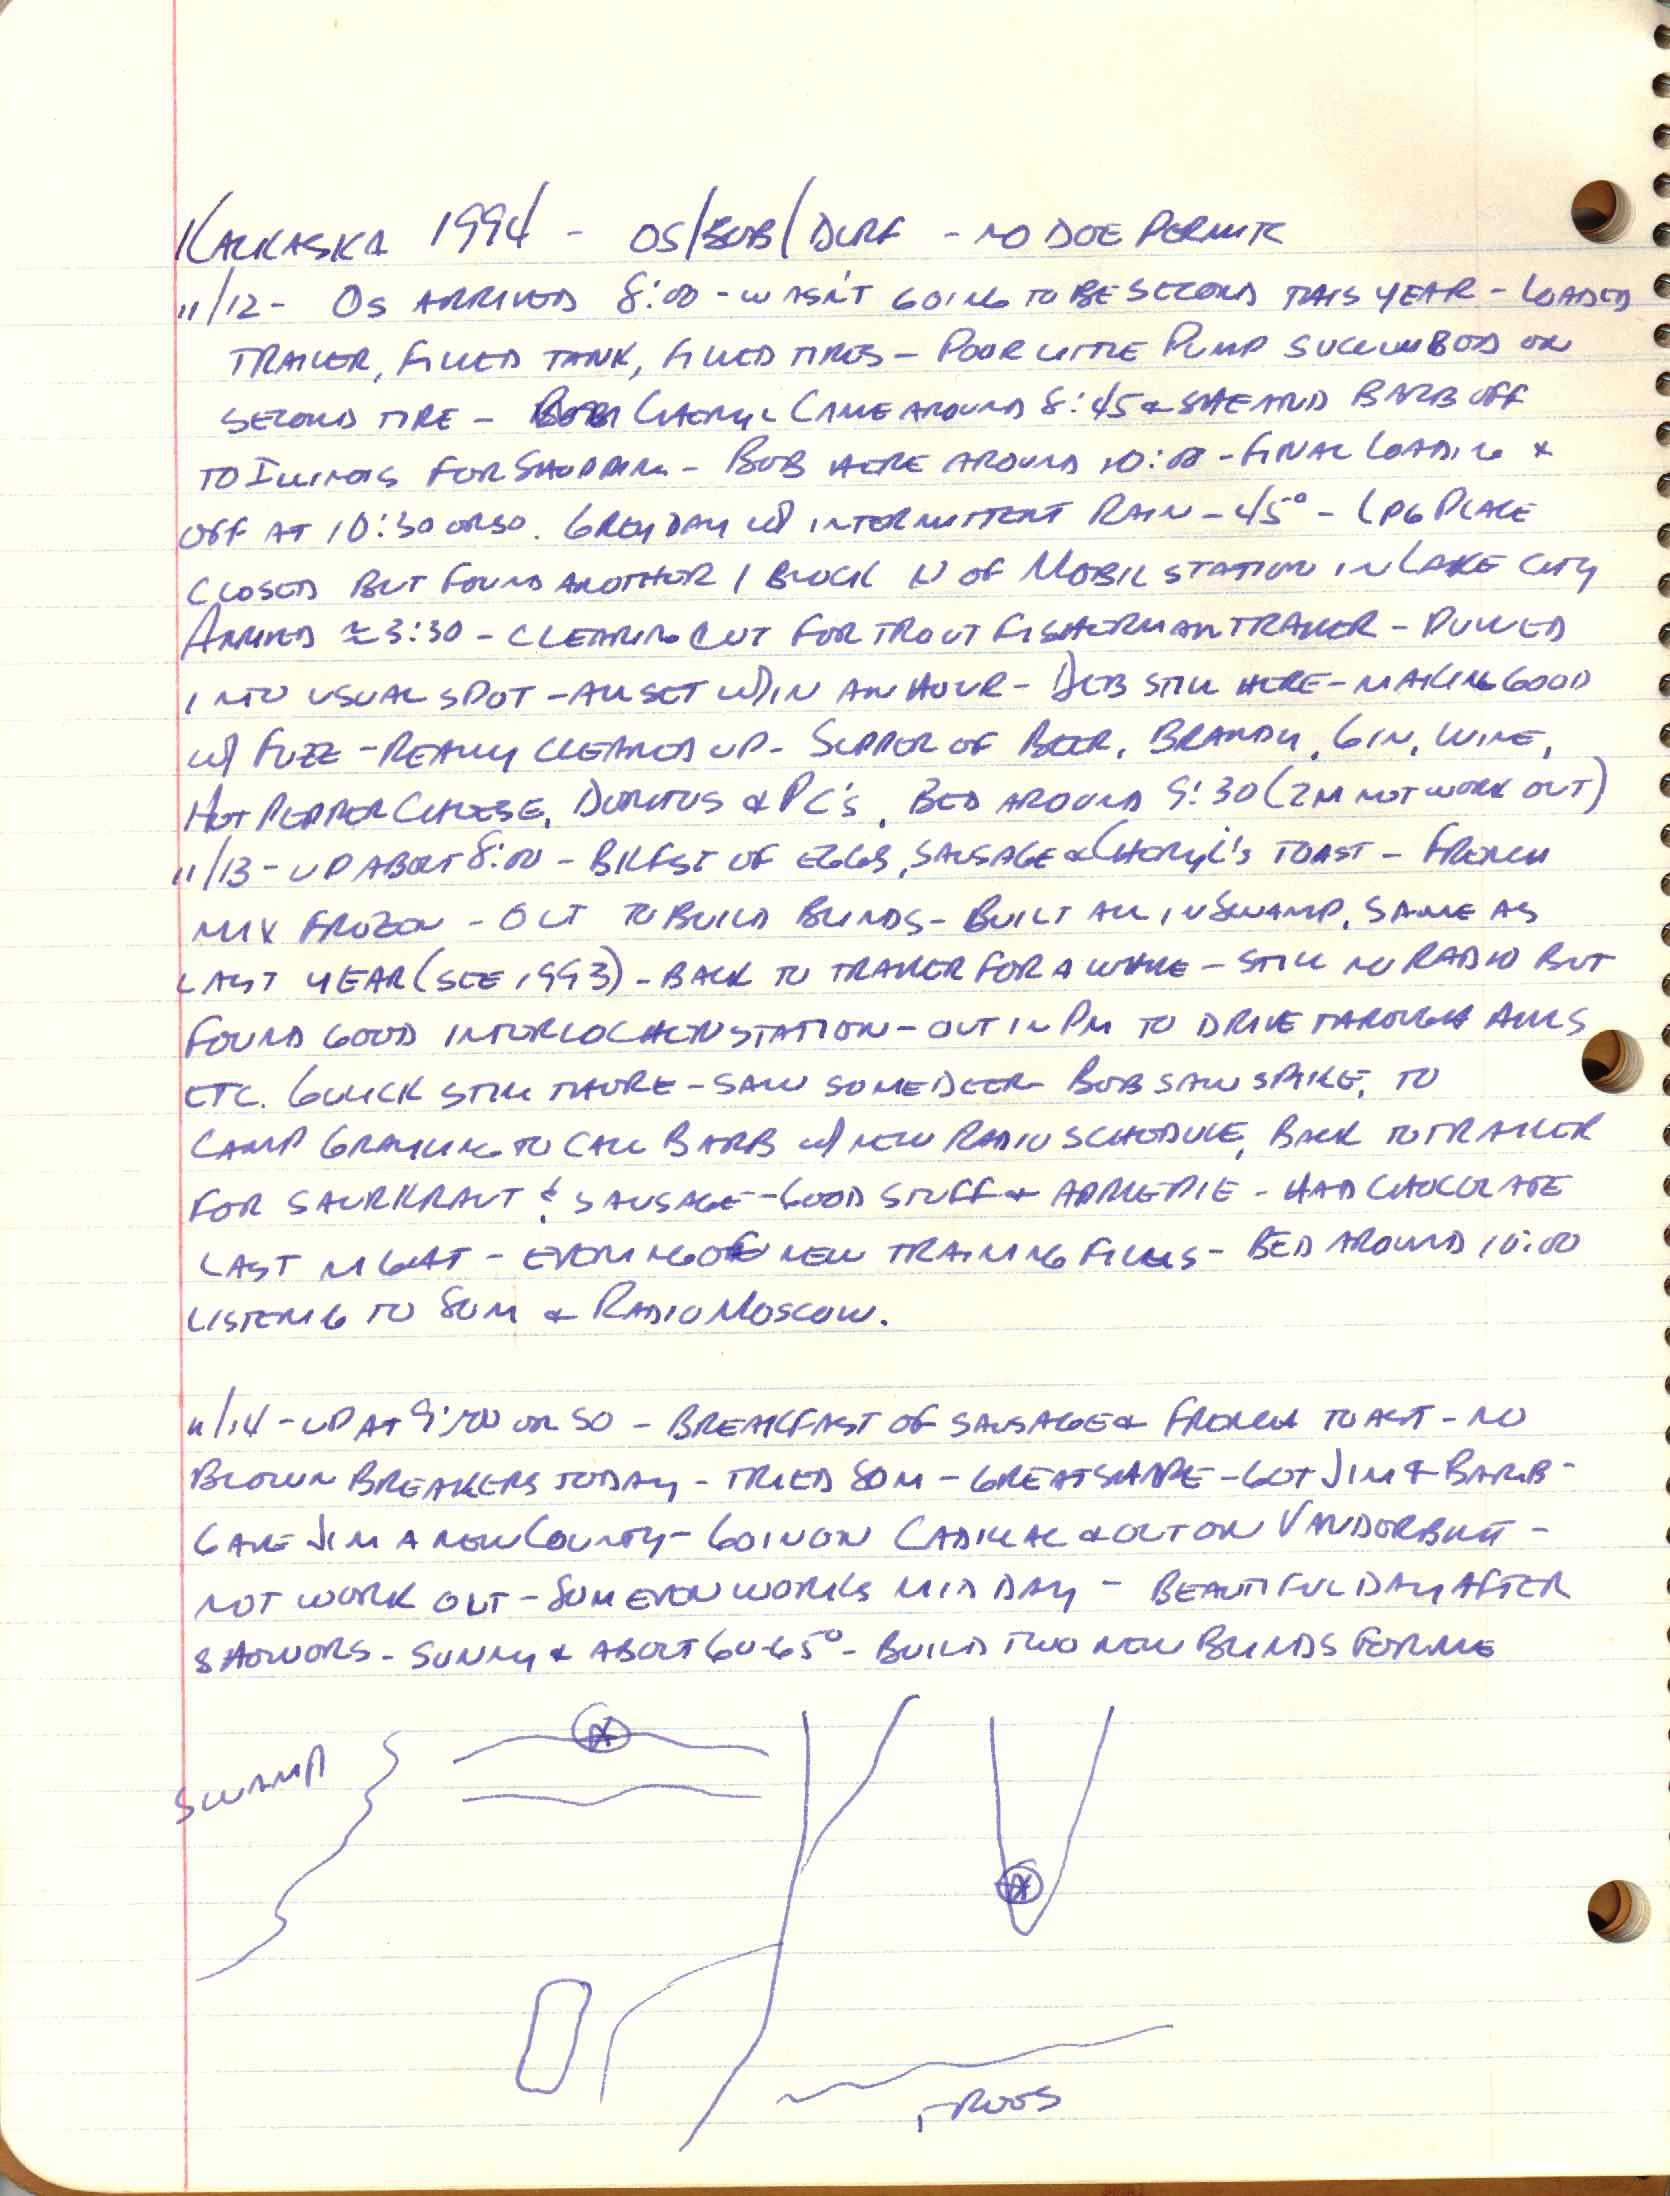 KALKASKA 1994 - OS/BOB/DURF - NO DOE PERMITS
11/12 - OS ARRIVED 8:00 - WASN'T GOING TO BE SECOND THIS YEAR - LOADED
TRAILER, FILLED TANK, FILLED TIRES - POOR LITTLE PUMP SUCCUMBED ON
SECOND TIRE - CHERYL CAME AROUND 8:45 & SHE AND BARB OFF
TO ILLINOIS FOR SHOPPING - BOB HERE AROUND 10:00 - FINAL LOADING &
OFF AT 10:30 OR SO. GREY DAY W/ INTERMITTENT RAIN - 45° - LPG PLACE
CLOSED BUT FOUND ANOTHER 1 BLOCK N OF MOBIL STATION IN LAKE CITY
ARRIVED ≈ 3:30 - CLEARING OUT FOR TROUT FISHERMAN TRAILER - PULLED
INTO USUAL SPOT - ALL SET W/IN AN HOUR - STILL HERE - MAKING GOOD
W/ FUZZ - REALLY CLEANED UP - SUPPER OF BEER, BRANDY, GIN, WINE,
HOT PEPPER CHEESE, DORITOS & PC'S, BED AROUND 9:30 (2M NOT WORK OUT)
11/13 - UP ABOUT 8:00 - BRKFST OF EGGS, SAUSAGE & CHERYL'S TOAST - FRENCH
MIX FROZEN - OUT TO BUILD BLINDS - BUILT ALL IN SWAMP, SAME AS
LAST YEAR (SEE 1993) - BACK TO TRAILER FOR A WHILE - STILL NO RADIO BUT
FOUND GOOD INTERLOCHEN STATION - OUT IN PM TO DRIVE THROUGH HILLS
ETC. GUICK STILL THERE - SAW SOME DEER - BOB SAW SPIKE, TO
CAMP GRAYLING TO CALL BARB W/ NEW RADIO SCHEDULE, BACK TO TRAILER
FOR SAURKRAUT & SAUSAGE - GOOD STUFF & APPLE PIE - HAD CHOCOLATE
LAST NIGHT - EVENING OF NEW TRAINING FILMS - BED AROUND 10:00
LISTENING TO 80M & RADIO MOSCOW.
11/14 - UP AT 9:00 OR SO - BREAKFAST OF SAUSAGE & FRENCH TOAST - NO
BLOWN BREAKERS TODAY - TRIED 80M - GREAT SHAPE - GOT JIM & BARB -
GAVE JIM A NEW COUNTY - GOIN ON CADILLAC & OUT ON VANDERBILT -
NOT WORK OUT - 80M EVEN WORKS MID DAY - BEAUTIFUL DAY AFTER
SHOWERS - SUNNY & ABOUT 60-65° - BUILD TWO NEW BLINDS FOR ME
SWAMP
TREES